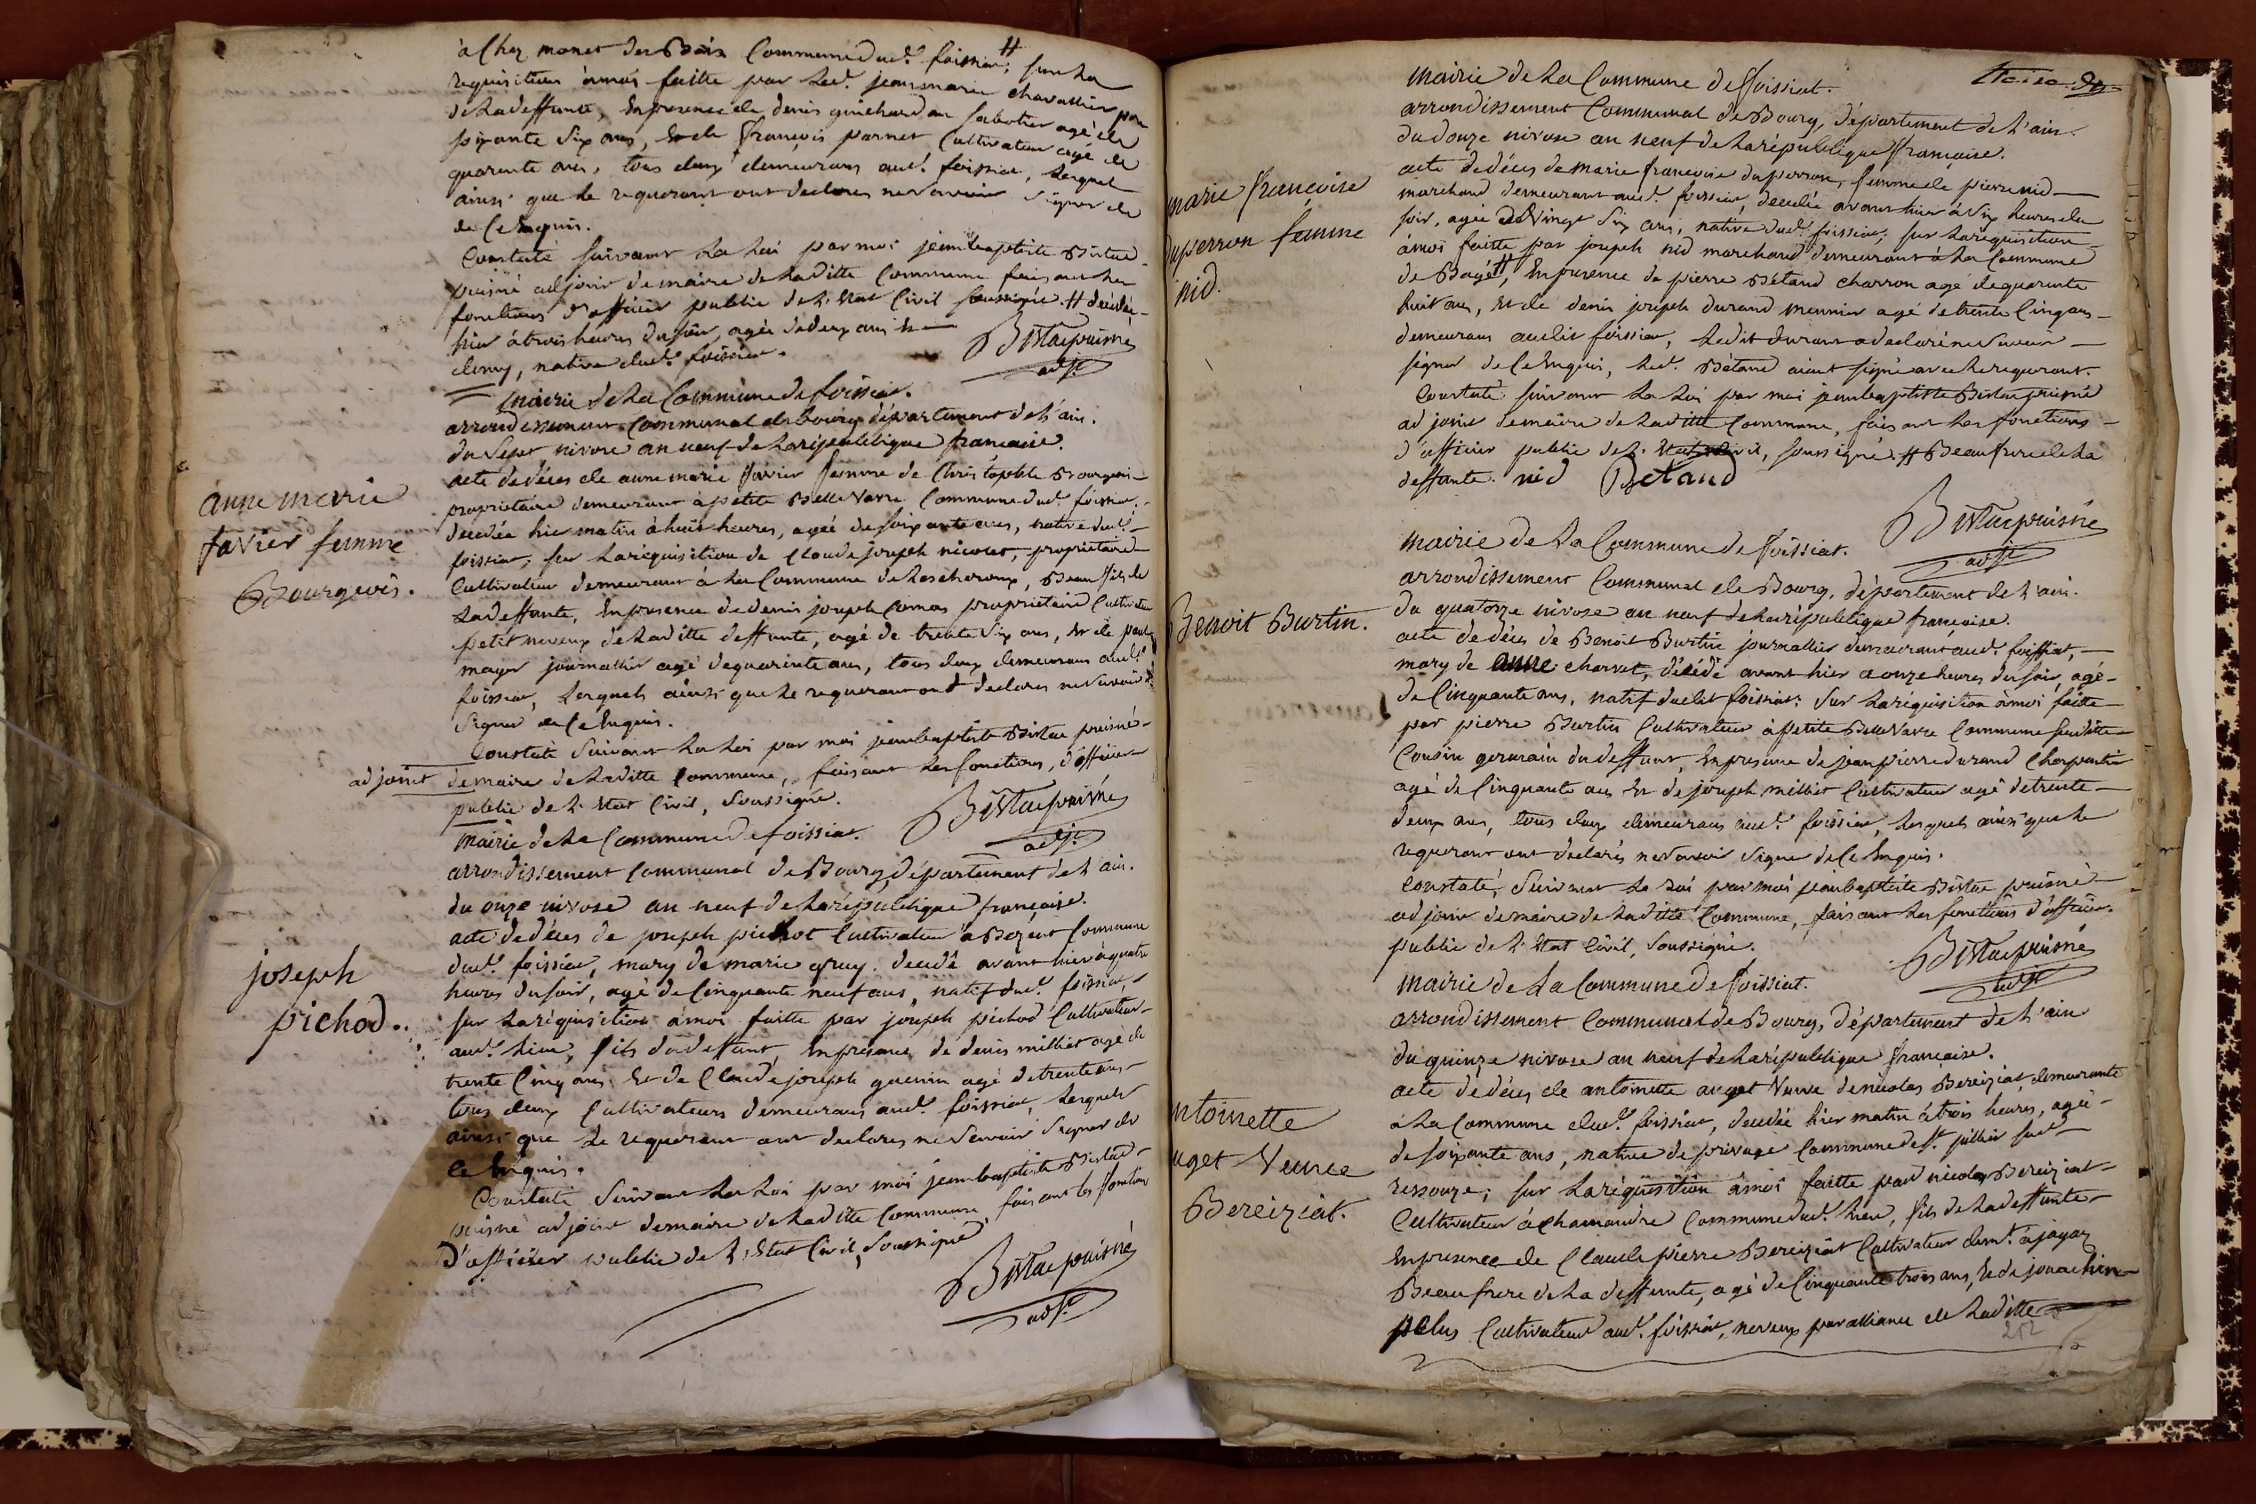 à Chez monet des Bois Commune dud.t foissiat, # sur la
requisition à moi faitte par led.t jean marie chavallier pere
de la deffunte, En presence de denis guichardan sabotier agé de
soixante six ans, Et de françois parnet Cultivateur agé de
quarante ans, tous deux demeurans aud.t foissiat, lesquels
ainsi que le requerant ont declarés ne savoir signer de
de Ce Enquis.
Constaté suivant la loi par moi jean baptiste Bistac
puisné adjoint de maire de laditte Commune faisant les
fonctions d'officier public de l'Etat Civil soussigné. # decédée
hier à trois heures du soir, agée de deux ans et
demy, native dud.t foissiat.
Bistac puisné
adjt
mairie de la Commune de foissiat.
arrondissement Communal de bourg département de l'ain.
du sept nivose an neuf de la république francaise.
anne marie
favier femme
Bourgeois.
acte de déces de anne marie favier femme de Christophle Bourgeois
propriétaire demeurant à petite Belle Vavre Commune dud.t foissiat,
decedée hier matin à huit heures, agée de soixante ans, native dud.t
foissiat, sur la requisition de Claude joseph nicolet, propriétaire
Cultivateur demeurant à la Commune de Lescheroux, Beau fils de
la deffunte, En presence de denis joseph Comas propriétaire Cultivateur
petit neveux de laditte deffunte, agé de trente six ans, Et de
mayer journallier agé de quarante ans, tous deux demeurans aud.t
foissiat, lesquels ainsi que le requerant ont declarés ne savoir
signer de Ce Enquis.
Constaté Suivant la loi par moi jean baptiste Bistac puisné
adjoint de maire de laditte Commune, faisant les fonctions, d'officier
public de l'Etat Civil, Soussigné.
Bistac puisné
adjt
mairie de la Commune de foissiat.
arrondissement Communal de Bourg, département de l'ain.
du onze nivose an neuf de la république française.
joseph
pichod.
acte de déces de joseph pichot Cultivateur à Bezent Commune
dud.t foissiat, mary de marie gruy. decedé avant hier à quatre
heures du soir, agé de Cinquante neuf ans, natif dud.t foissiat,
sur la requisition à moi faitte par joseph pichod Cultivateur
aud.t lieu, fils du deffunt, En presence de denis milliet agé de
trente Cinq ans Et de Claude joseph guenin agé de trente ans
tous deux Cultivateurs demeurans aud.t foissiat, lesquels
ainsi que le requerant ont declarés ne Savoir Signer de
Ce Enquis.
Constaté Suivant la loi par moi jean baptiste Bistac
puisné adjoint de maire de laditte Commune faisant les fonctions
d'officier public de l'Etat Civil, Soussigné
Bistac puisné
adjt
mairie de la Commune de foissiat.
arrondissement Communal de Bourg, département de l'ain.
du douze nivose an neuf de la république française.
marie françoise
duperron femme
nid.
acte de déces de marie francoise duperron, femme de pierre nid
marchand demeurant aud.t foissiat, decedée avant hier à six heures du
soir, agée de Vingt Six ans, native dud.t foissiat; sur la requisition
à moi faitte par joseph nid marchand demeurant à la Commune
de Bagé #, En presence de pierre Bétand charron agé de quarante
huit ans, Et de denis joseph durand meunier agé de trente Cinq ans
demeurans audit foissiat, ledit durant a declaré ne Savoir
signer de Ce Enquis, led.t Bétand aiant signé avec le requerant.
Constaté suivant la loi par moi jean baptiste Bistac puisné
adjoint de maire de laditte Commune, faisant les fonctions
d'officier public de l'Etat Civil, soussigné. # Beau frere de la
deffunte. nid Betand
Bistac puisné
adjt
mairie de la Commune de foissiat.
arrondissement Communal de Bourg, département de l'ain.
du quatorze nivose an neuf de la république française.
Benoit Burtin.
acte de déces de Benoit Burtin journallier demeurant aud.t foissiat,
mary de anne charvet, décédé avant hier a onze heures du soir, agé
de Cinquante ans, natif dudit foissiat; Sur la réquisition à moi faitte
par pierre Burtin Cultivateur à petite Belle Vavre Commune susditte
Cousin germain du deffunt, En presence de jean pierre durand Charpentier
agé de Cinquante ans Et de joseph milliet Cultivateur agé de trente
deux ans, tous deux demeurans aud.t foissiat, lesquels ainsi que le
requerant ont declarés ne Savoir Signer de Ce Enquis.
Constaté, Suivant la loi par moi jean baptiste Bistac puisné
adjoint de maire de laditte Commune, faisant les fonctions d'officier
public de l'Etat Civil, Soussigné.
Bistac puisné
adjt
mairie de la Commune de foissiat.
arrondissement Communal de Bourg, département de l'ain
du quinze nivose an neuf de la république francaise.
ntoinette
uget Veuve
Bereiziat.
acte de déces de antoinette auget Veuve de nicolas Bereiziat demeurante
à la Commune dud.t foissiat, decedée hier matin à trois heures, agée
de soixante ans, native de privage Commune de st. jullien sur
ressouze; sur la réquisition à moi faitte par nicolas Bereiziat
Cultivateur à chamandre Commune dud.t lieu, fils de la deffunte
En presence de Claude pierre Bereiziat Cultivateur dem.t à jayat
Beau frere de la deffunte, agé de Cinquante trois ans, Et de joachin
pelus Cultivateur aud.t foissiat, neveux par alliance de laditte
212